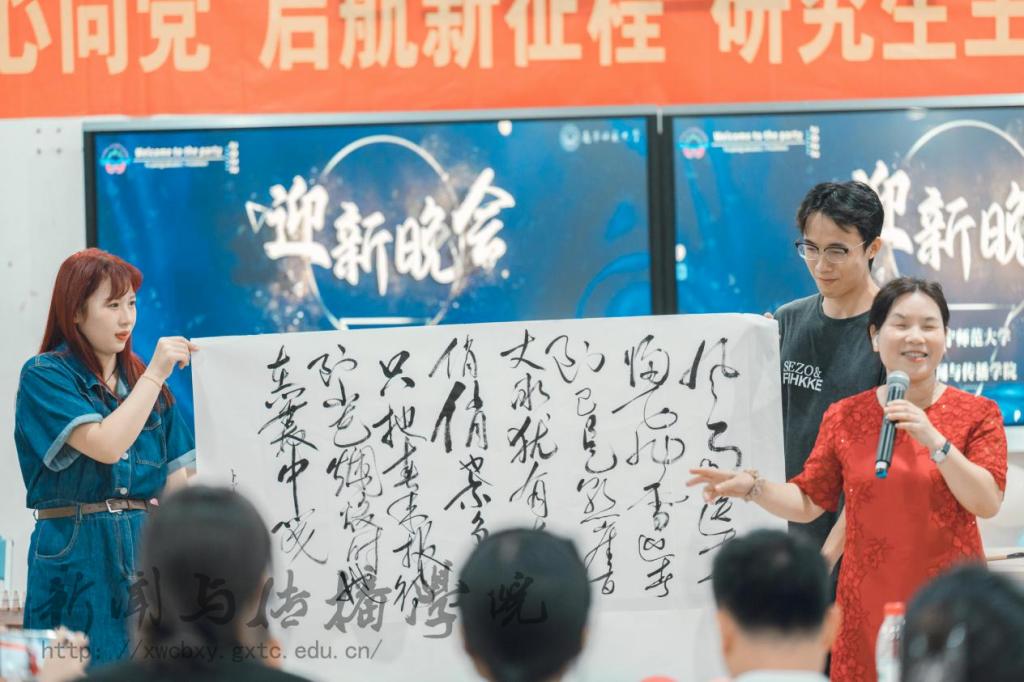 心向党 启航新征程 研究生
Welcome to the party
迎新晚会
Welcome to the party
迎新晚
师范大学
与传播学院
SEZO&
风雨送
归飞雪迎春
到已是悬崖百
丈冰犹有
俏俏
只把春来报待
到山花烂漫时她
在丛中笑
新闻与传播学院
http://xwcbxy.gxtc.edu.cn/